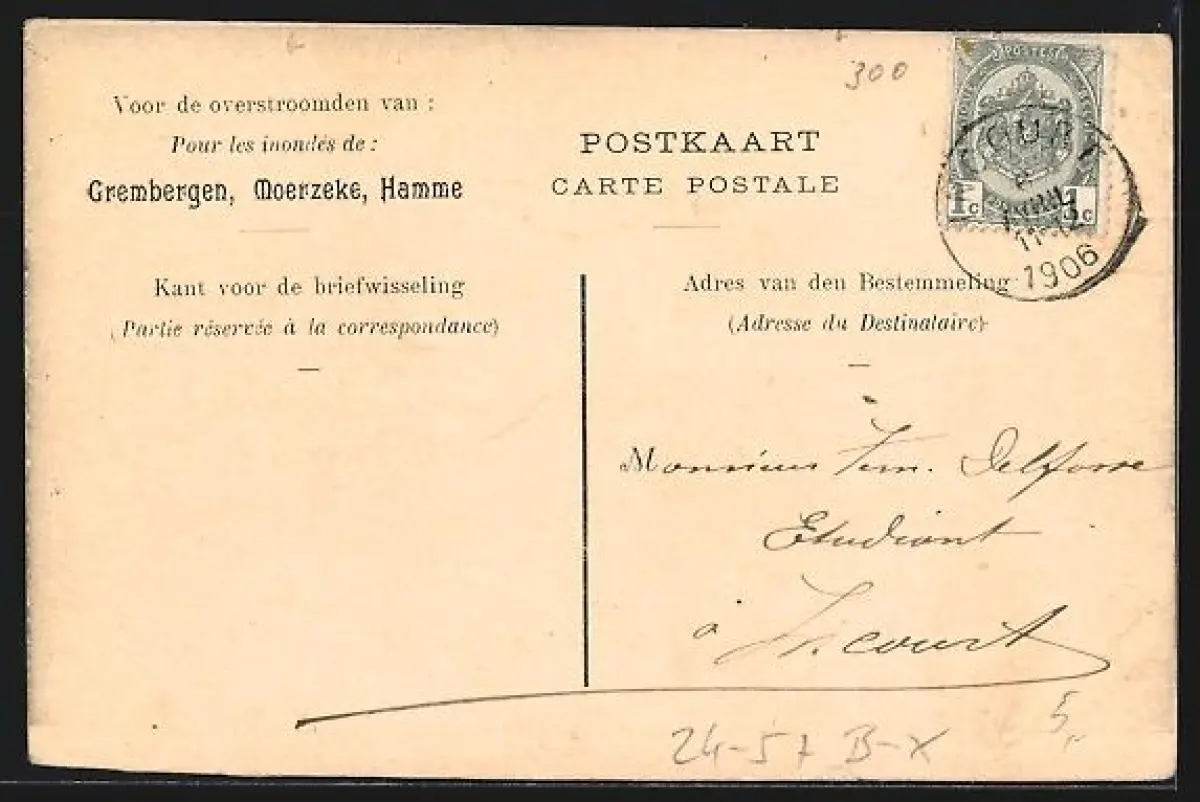 300
Voor de overstroomden van :
Pour les inondés de :
Grembergen, Moerzeke, Hamme
POSTKAART
CARTE POSTALE
POSTES
1c 1c
1906
Kant voor de briefwisseling
(Partie réservée à la correspondance)
Adres van den Bestemmeling
(Adresse du Destinataire)
Monsieur Delforre
Etudiant
à
5,-
24-57 B-X